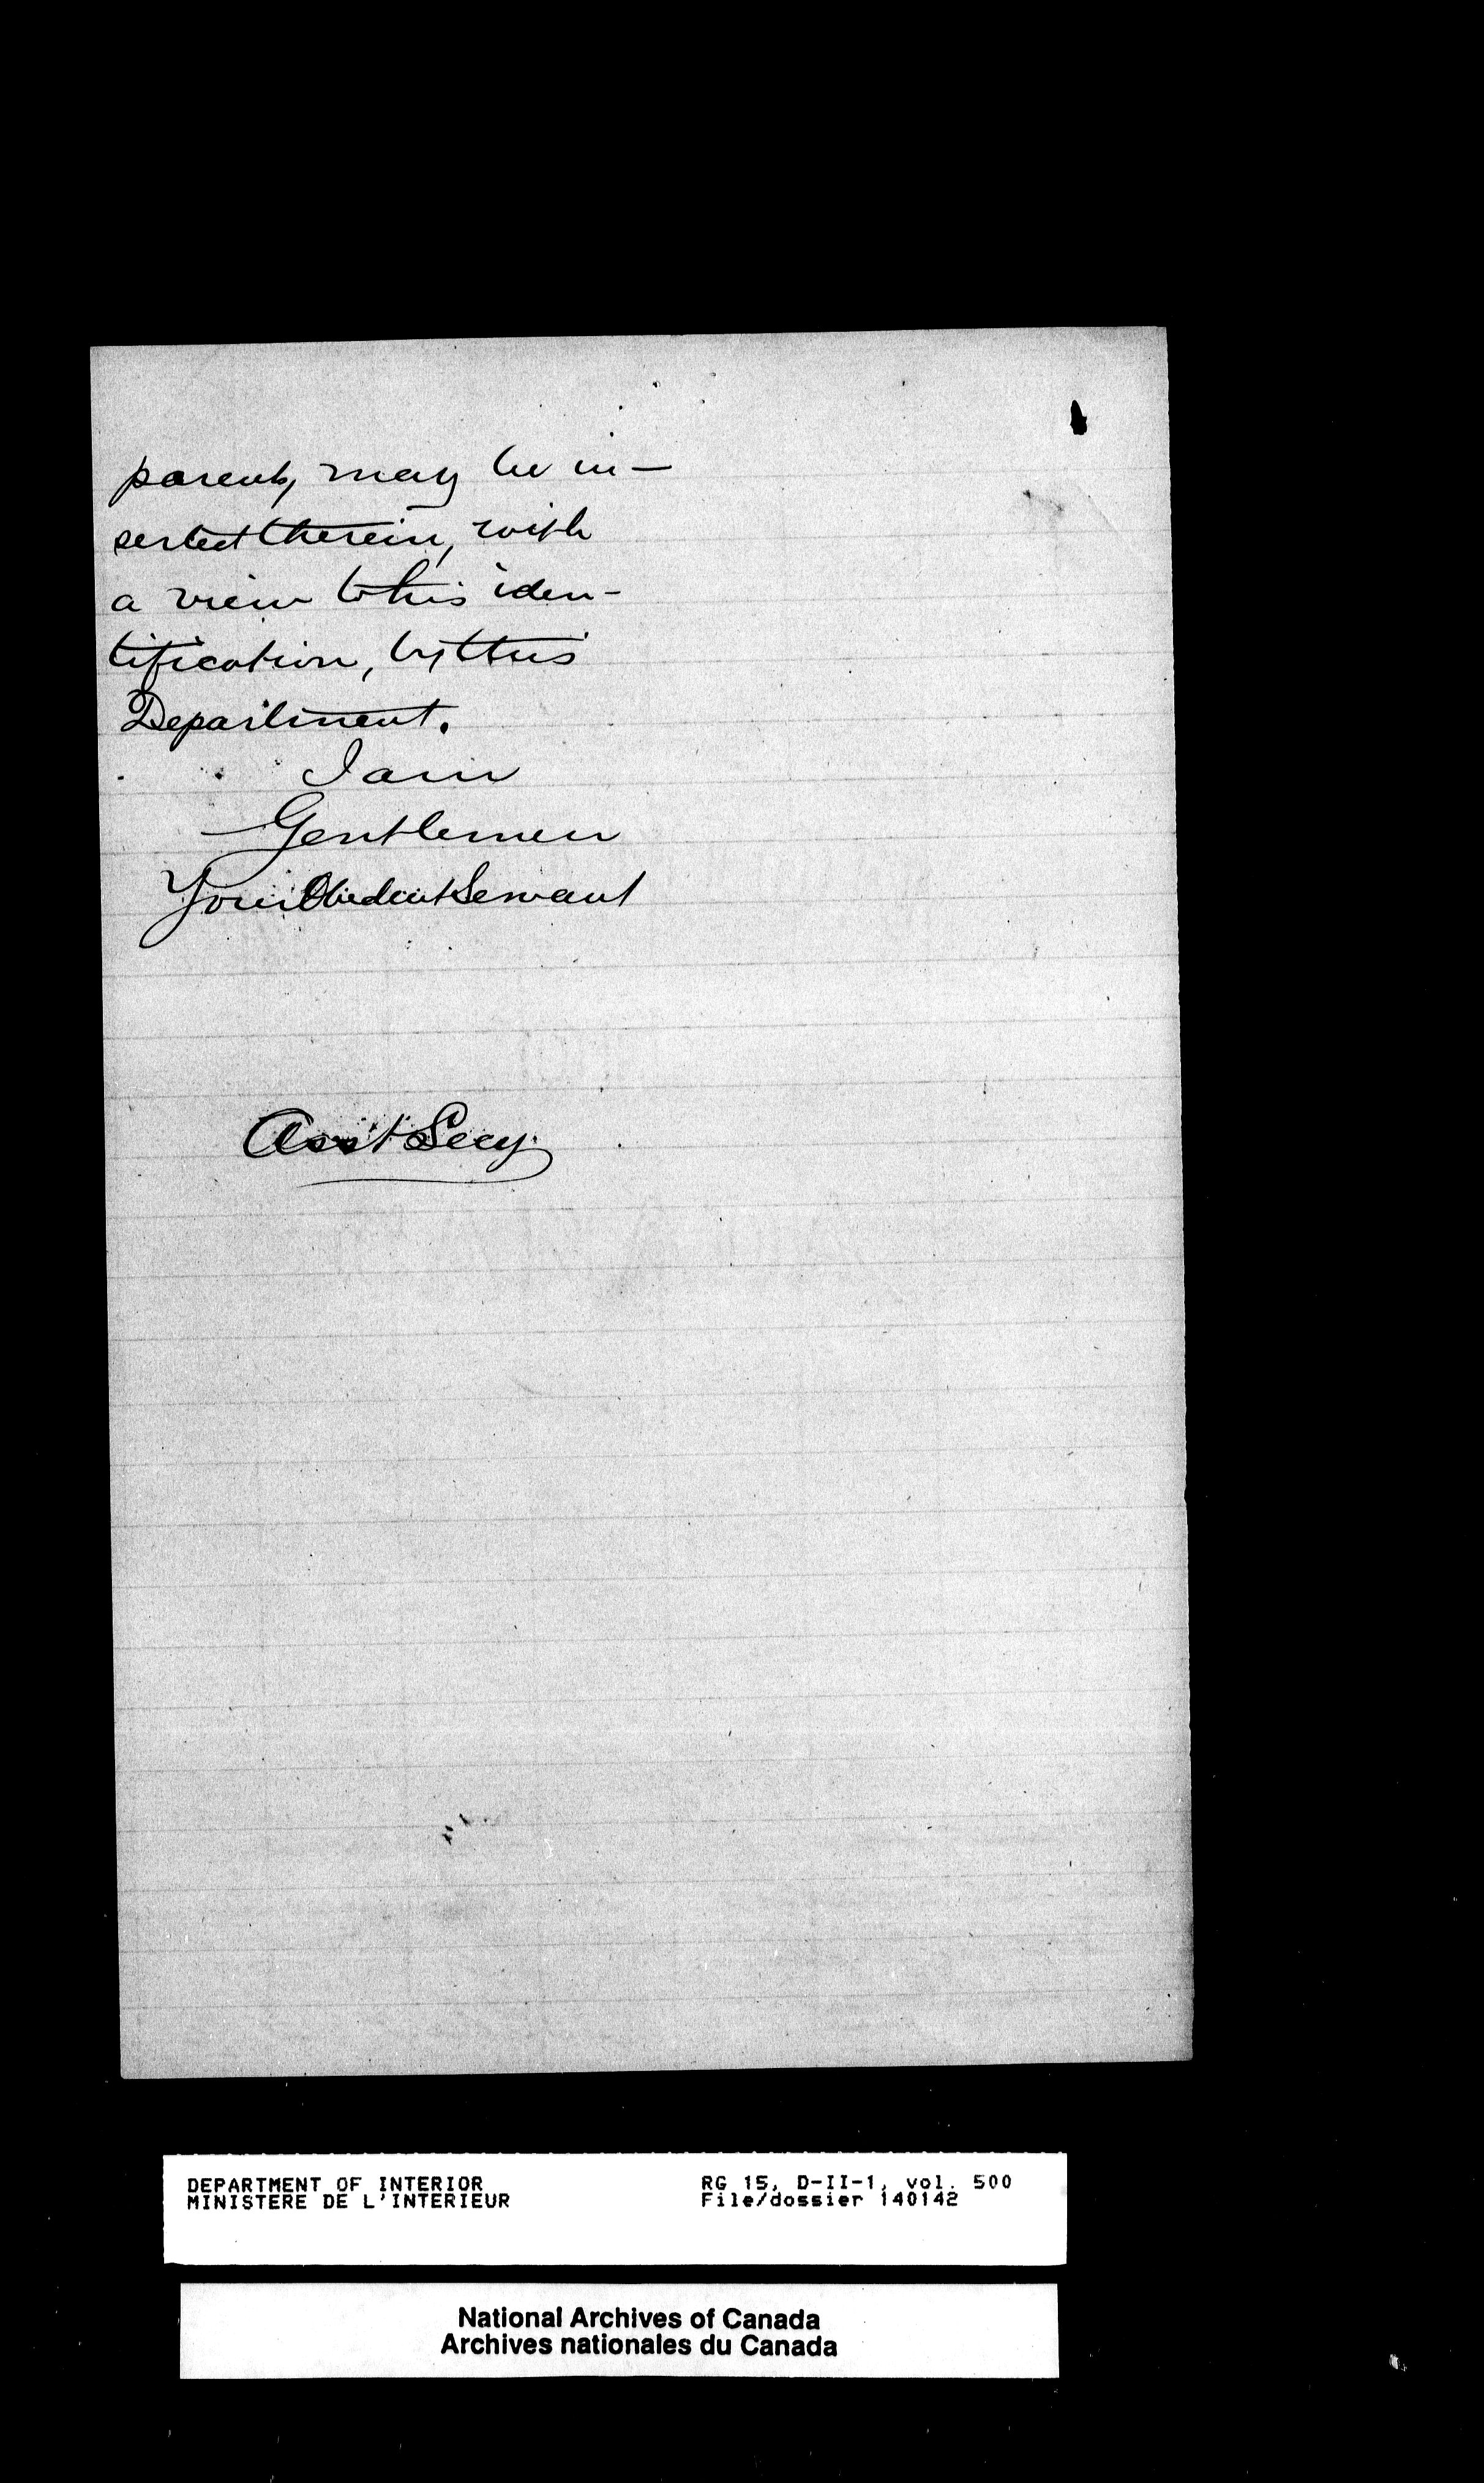 parents, may be in-
serted therein, with
a view to his iden-
tification, by this
Department.
I am
Gentlemen
Your Obedient Servant
Ass't Secy.
DEPARTMENT OF INTERIOR
MINISTERE DE L'INTERIEUR
RG 15, D-II-1, vol. 500
File/dossier 140142
National Archives of Canada
Archives nationales du Canada